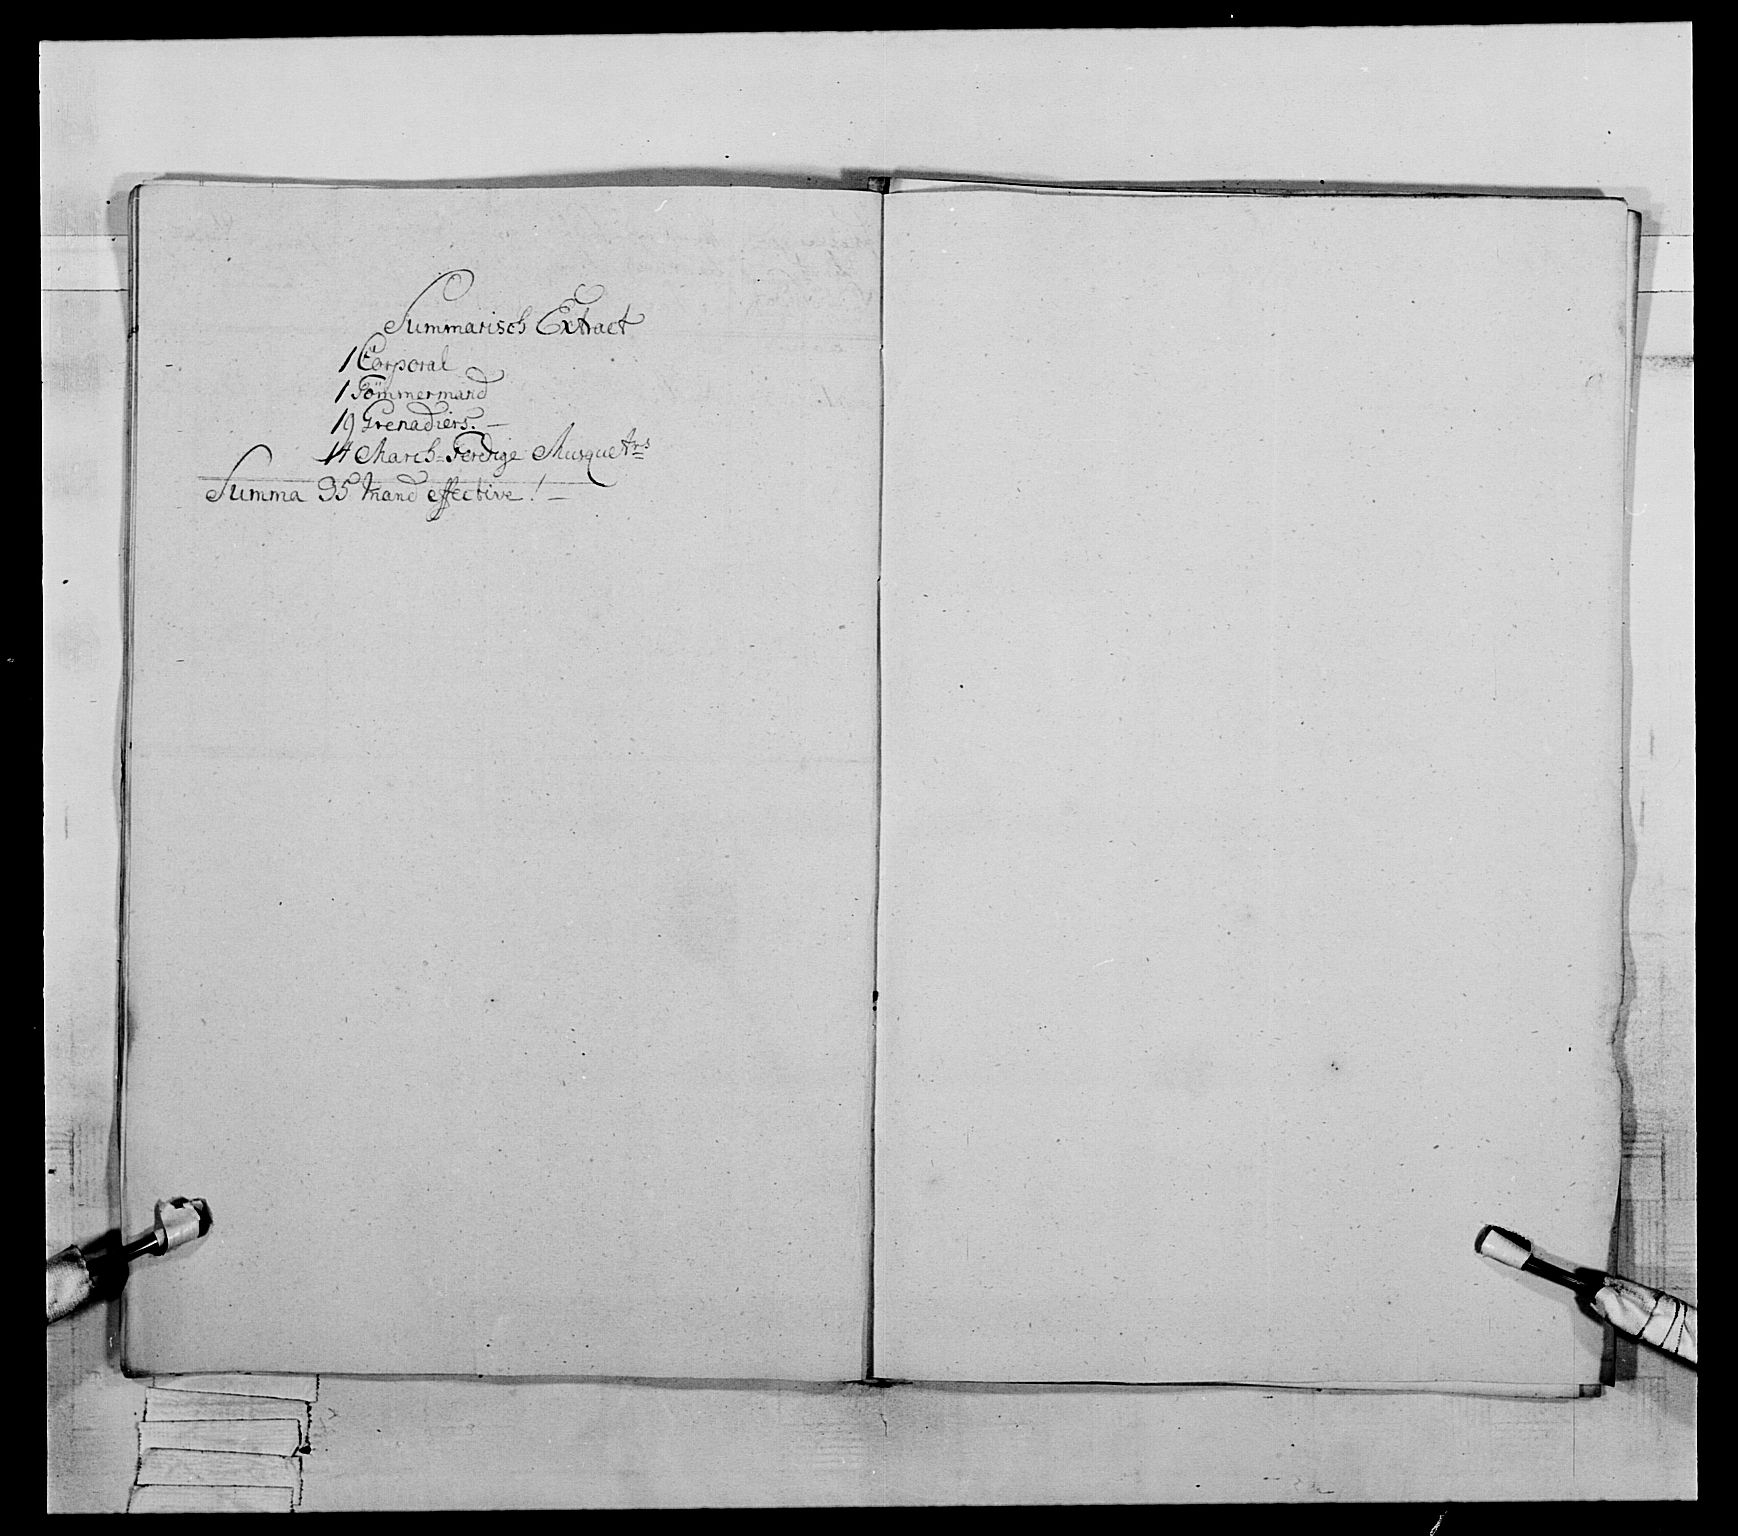 Summarisch Extract
1 Corporal
1 Tömmermand
19 Grenadiers. —
14 March=Ferdige Musquetrs
Summa 35 Mand effective! —